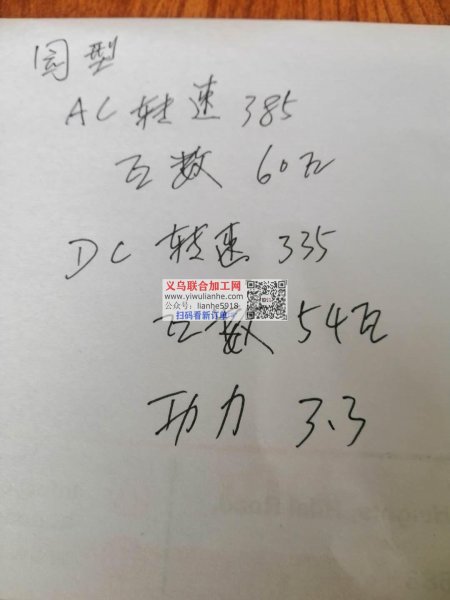 圆型
AC 转速 385
瓦数 60瓦
DC 转速 335
义乌联合加工网
www.yiwulianhe.com
公众号: lianhe5918
扫码看新订单→
瓦数 54瓦
功力 3.3